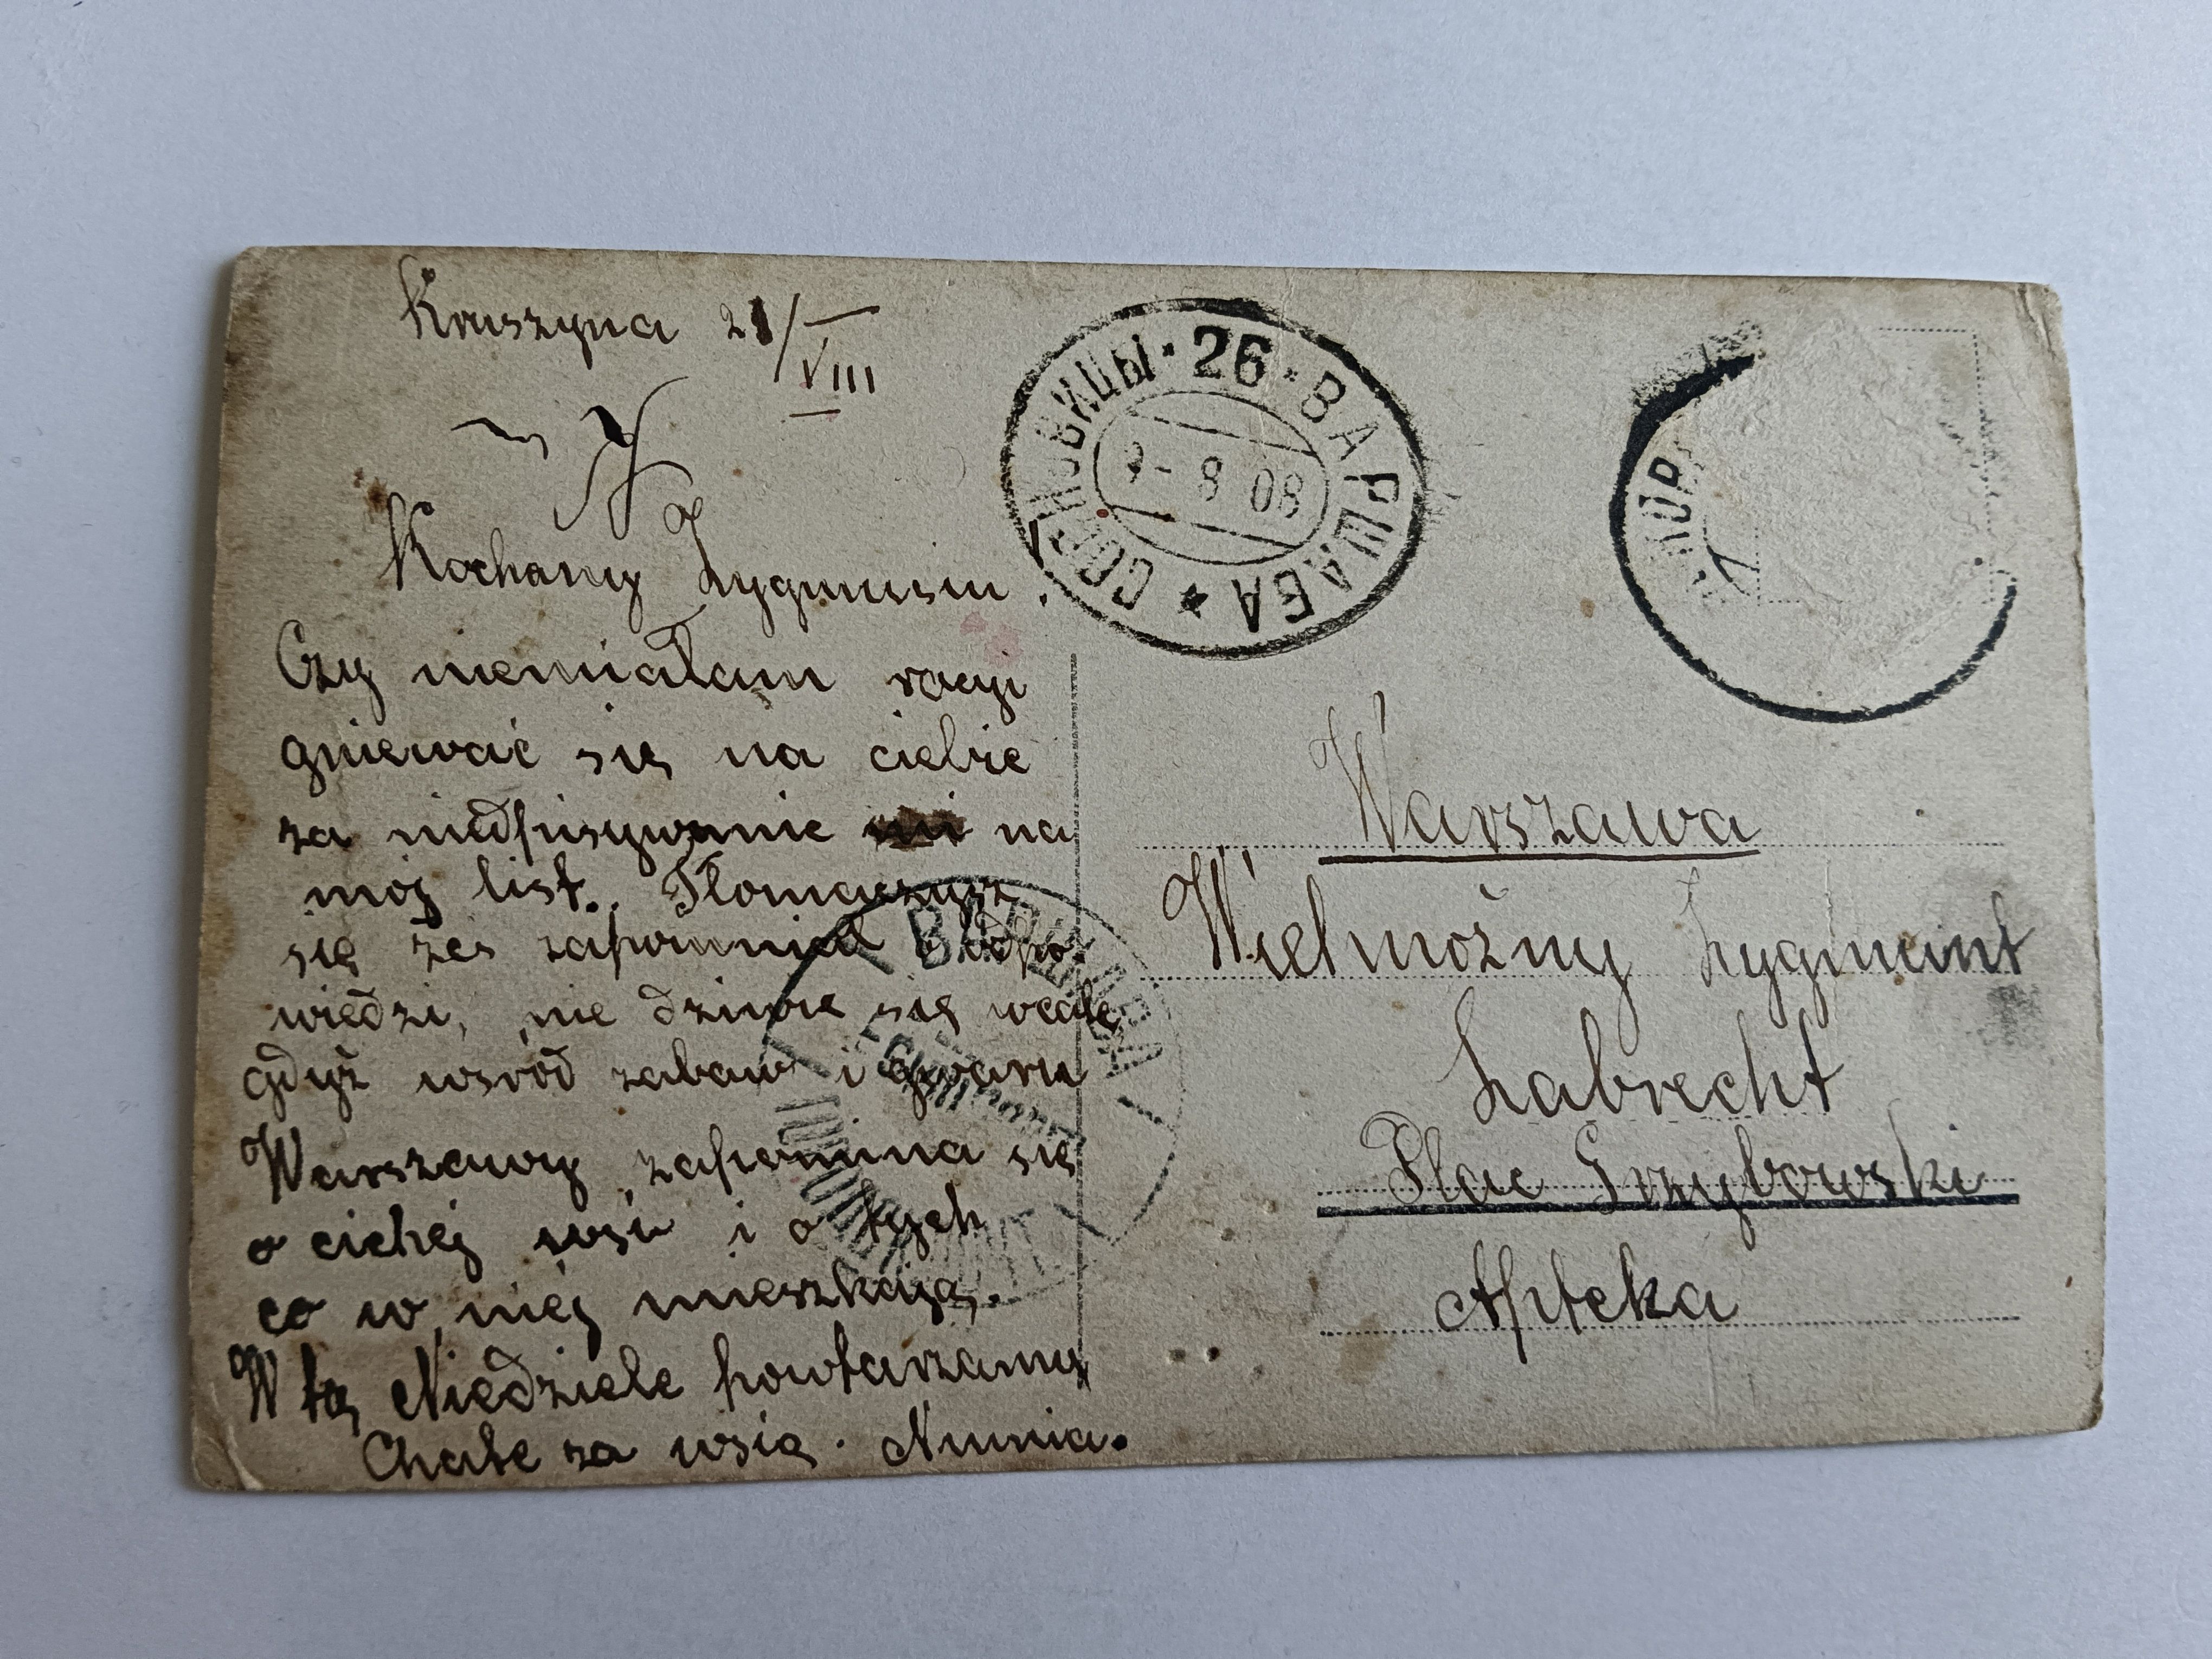 Kruszyna 21/VIII
Kochany Zygmusiu,
Czy niemiałam racyi
gniewać się na ciebie
za nieodpisywanie na
mój list. Tłomaczysz
się żeś zapomniał odpo-
wiedzi, nie dziwię się wcale
gdyż wśród zabaw i gwaru
Warszawy zapomina się
o cichej wsi i o tych
co w niej mieszkają.
W tę Niedziele powtarzamy
Chatę za wsią. Niunia.
СОСНОВИЦЫ · 26 · ВАРШАВА
8 08
ВАРШАВА
Warszawa
Wielmożny Zygmunt
Labrecht
Plac Grzybowski
Apteka